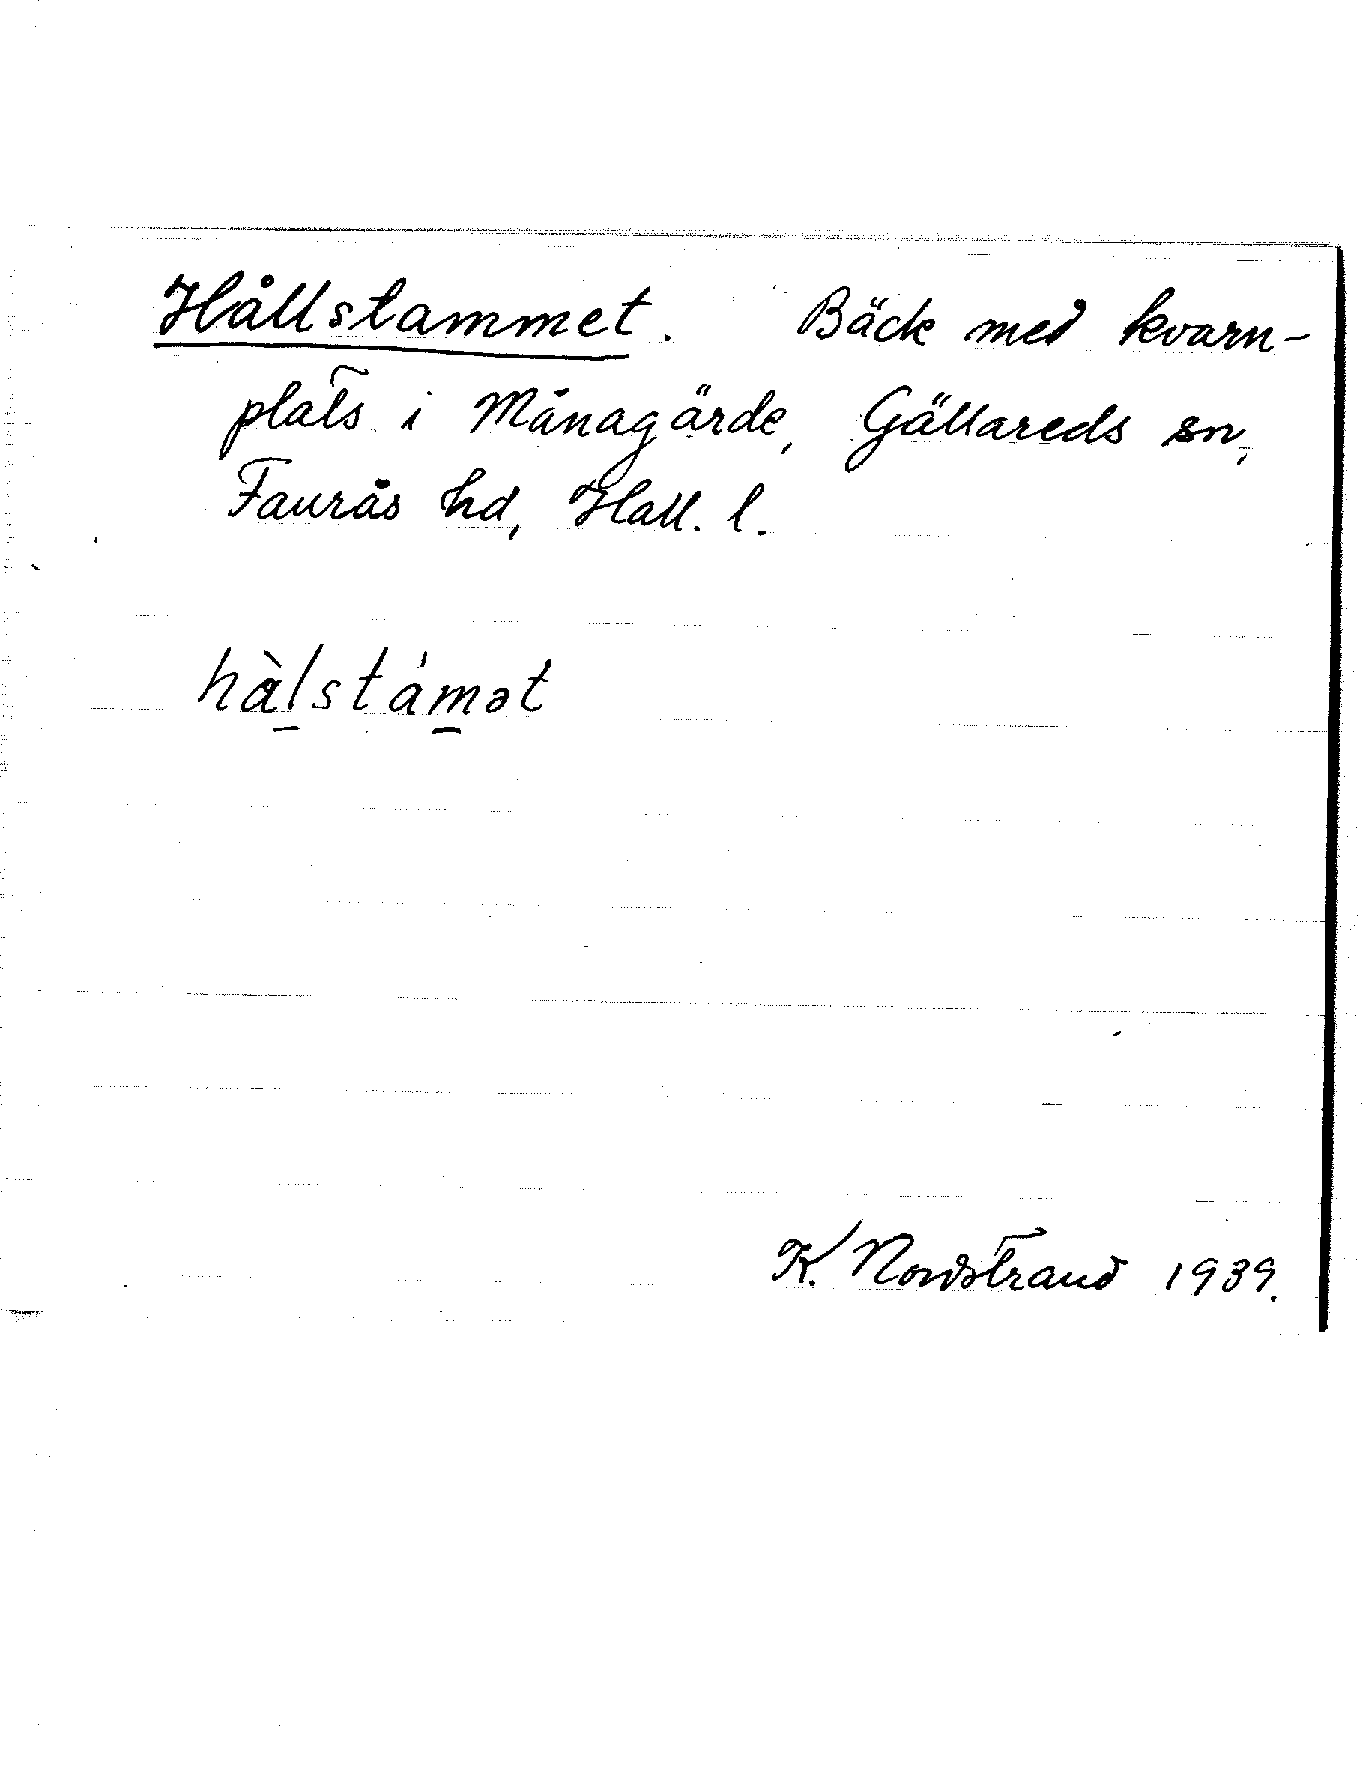 Hållstammet. Bäck med kvarn-
plats i Månagärde, Gällareds sn,
Faurås hd, Hall. l.
hàlstámət
K. Nordstrand 1939.